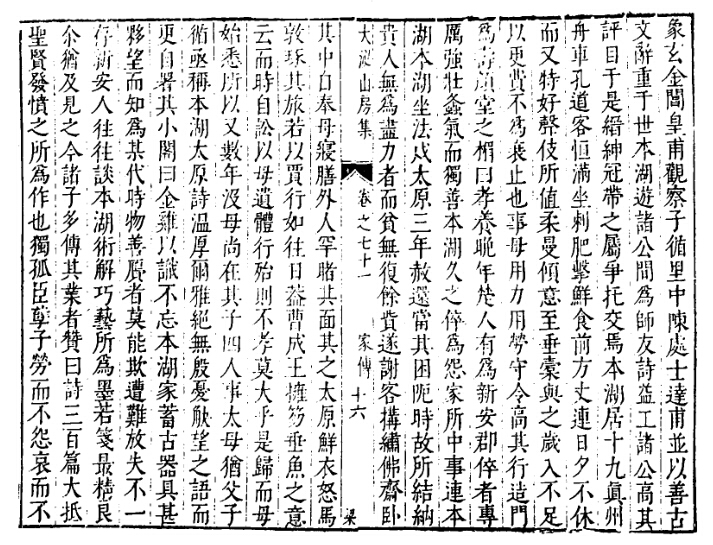 象玄金閶皇甫觀察子循里中陳處士達甫並以善古
文辭重于世本湖遊諸公間爲師友詩益工諸公高其
評目于是縉紳冠帶之屬爭托交焉本湖居十九眞州
舟車孔道客恒滿坐刺肥擊鮮食前方丈連日夕不休
而又特好聲伎所値柔曼傾意至垂橐與之歲入不足
以更費不爲衰止也事母用力用勞守令高其行造門
爲壽顏堂之楣曰孝養晩年楚人有爲新安郡倅者專
厲強壯蠭氣而獨善本湖久之倅爲怨家所中事連本
湖本湖坐法戍太原三年赦還當其困阨時故所結納
貴人無爲盡力者而貧無復餘貲遂謝客搆繡佛齋臥
大泌山房集 卷之七十一 家傳 十六
其中自奉母寢膳外人罕睹其面其之太原鮮衣怒馬
敦琢其旅若以買行如往日葢曹成王擁笏垂魚之意
云而時自訟以母遺體行殆則不孝莫大乎是歸而母
始悉所以又數年沒母尚在其子四人事太母猶父子
循亟稱本湖太原詩溫厚爾雅絕無殷憂觖望之語而
更自署其小閣曰金雞以識不忘本湖家蓄古器具甚
夥望而知爲某代時物善贗者莫能欺遭難放失不一
存新安人往往談本湖術解巧藝所爲墨若箋最精良
余猶及見之今諸子多傳其業者贊曰詩三百篇大抵
聖賢發憤之所爲作也獨孤臣孽子勞而不怨哀而不